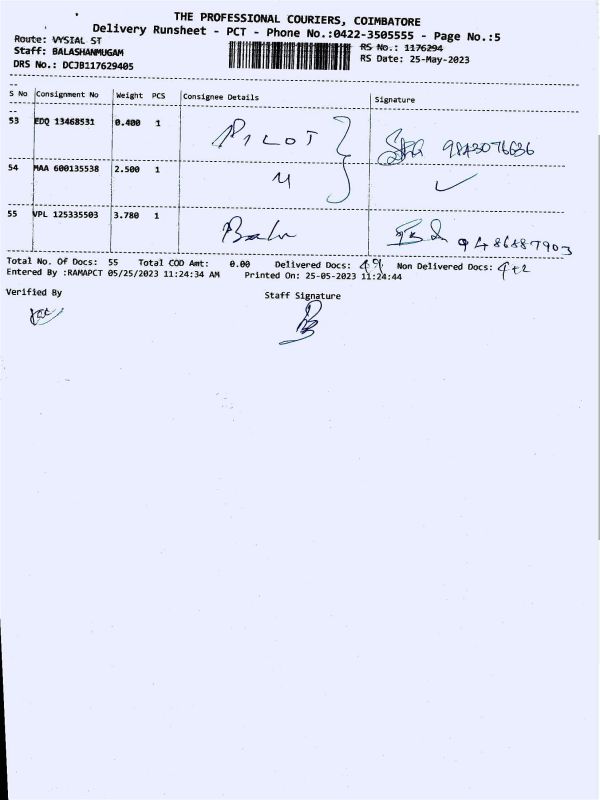 THE PROFESSIONAL COURIERS, COIMBATORE
Delivery Runsheet - PCT - Phone No.:0422-3505555 - Page No.:5
Route: VYSIAL ST
RS No.: 1176294
Staff: BALASHANMUGAM
RS Date: 25-May-2023
DRS No.: DCJB117629405
S No Consignment No Weight PCS Consignee Details Signature
53 EDQ 13468531 0.400 1 PILOT 9843076636
54 MAA 600135538 2.500 1
55 VPL 125335503 3.780 1 9486887903
Total No. Of Docs: 55 Total COD Amt: 0.00 Delivered Docs: 49 Non Delivered Docs: 4+2
Entered By :RAMAPCT 05/25/2023 11:24:34 AM Printed On: 25-05-2023 11:24:44
Verified By Staff Signature